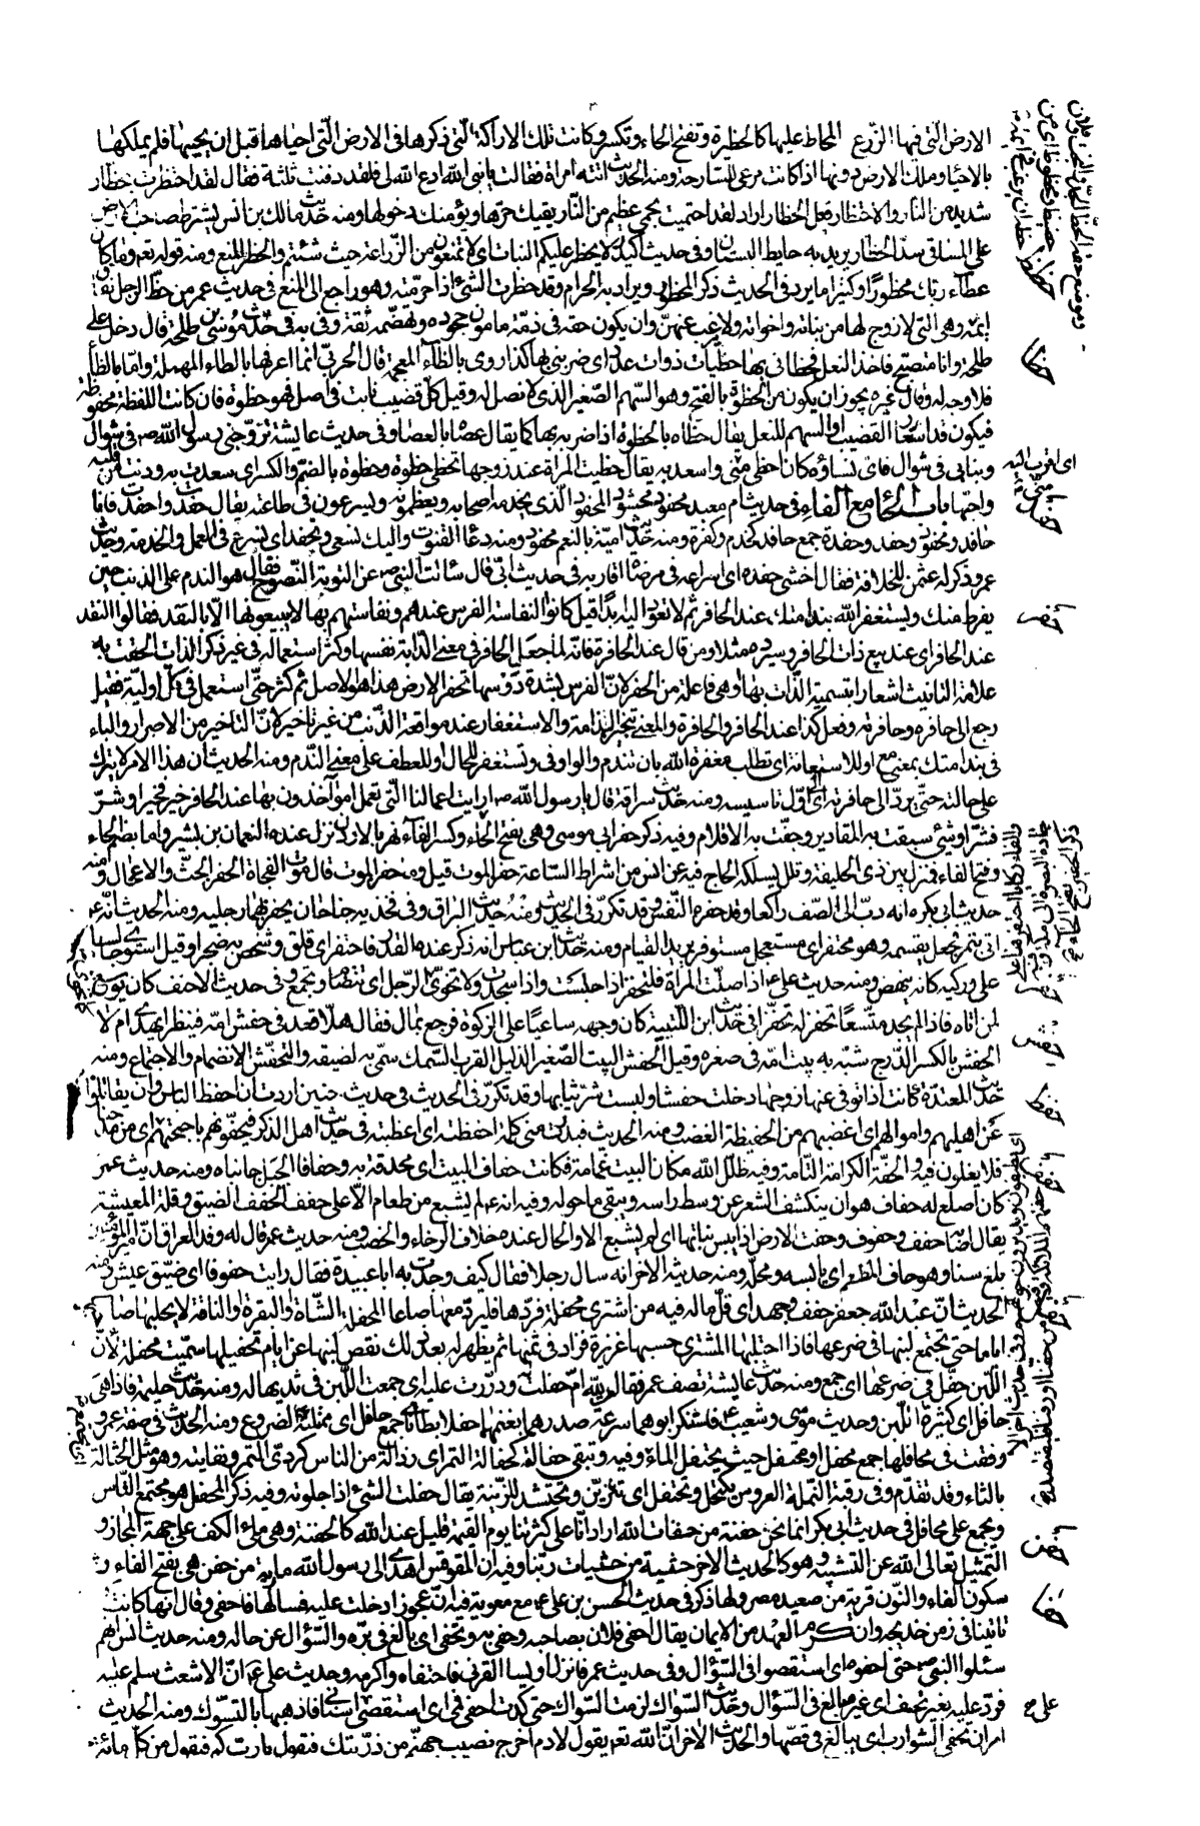 الارض التي فيها الزرع المحاط عليها كالحظيرة وتفتح الحاء وتكسر وكانت تلك الاراكة التي ذكرها في الارض التي احياها قبل ان يحييها فلم يملكها
بالاحياء وملك الارض دونها اذ كانت مرعى للسارحة ومنه الحديث اتته امراة فقالت يا نبي الله ادع الله لي فلقد دفنت ثلثة فقال لقد احتظرت بحظار
شديد من النار والاحتظار فعل الحظار اراد لقد احتميت بحمى عظيم من النار يقيك حرها ويؤمنك دخولها ومنه حديث مالك بن انس يشترط صاحب الارض
على المساقي سد الحظار يريد به حايط البستان وفي حديث اكيدر لا يحظر عليكم النبات اي لا تمنعون من الزراعة حيث شئتم والحظر المنع ومنه قوله تعم وما كان
عطاء ربك محظورا وكثيرا ما يرد في الحديث ذكر المحظور ويراد به الحرام وقد حظرت الشئ اذا حرمته وهو راجع الى المنع في حديث عمر من حظ الرجل نفاق
ايمه وهي التي لا زوج لها من بناته واخواته ولا يرغب عنهن وان يكون حقه في ذمة مامون جحوده وتهضمه ثقة وفي به في حديث موسى بن طلحة قال دخل علي
طلحة وانا متصبح فاخذ النعل فحظاني بها حظيات ذوات عدد اي ضربني بها كذا روي بالظاء المعجمة قال الحربي انما اعرفها بالطاء المهملة واما بالظاء
فلا وجه له وقال غيره يجوز ان يكون من الحظوة بالفتح وهو السهم الصغير الذي لا نصل له وقيل كل قضيب نابت في اصل فهو حظوة فان كانت اللفظة محفوظة
فيكون قد استعار القضيب او السهم للنعل يقال حظاه بالحظوة اذا ضربه بها كما يقال عصاه بالعصا وفي حديث عايشة تزوجني رسول الله ص في شوال
وبنى بي في شوال فاي نساؤه كان احظى مني واسعد به يقال حظيت المراة عند زوجها تحظى حظوة وحظوة بالضم والكسر اي سعدت به ودنت من قلبه
واحبها باب الحاء مع الفاء في حديث ام معبد محفود محشود المحفود الذي يخدمه اصحابه ويعظمونه ويسرعون في طاعته يقال حفدت واحفدت فانا
حافد ومحفود وحفد وحفدة جمع حافد كخدم وكفرة ومنه حديث امية بالنعم محفود ومنه دعاء القنوت واليك نسعى ونحفد اي نسرع في العمل والخدمة وحديث
عمر وذكر له عثمن للخلافة فقال اخشى حفده اي اسراعه في مرضاة اقاربه في حديث ابي قال سالت النبي ص عن التوبة النصوح فقال هو الندم على الذنب حين
يفرط منك وتستغفر الله بندامتك عند الحافر ثم لا تعود اليه ابدا قيل كانوا لنفاسة الفرس عندهم ونفاستهم بها لا يبيعونها الا بالنقد فقالوا النقد
عند الحافر اي عند بيع ذات الحافر وسيروه مثلا ومن قال عند الحافرة فانه لما جعل الحافر في معنى الدابة نفسها وكثر استعماله في غير ذكر الذات الحقت به
علامة التانيث اشعارا بتسمية الذات بها او هي فاعلة من الحفر لان الفرس بشدة دوسها تحفر الارض هذا هو الاصل ثم كثر حتى استعمل في كل اولية فقيل
رجع الى حافره وحافرته وفعل كذا عند الحافر والحافرة والمعنى تنجيز الندامة والاستغفار عند مواقعة الذنب من غير تاخير لان التاخير من الاصرار والباء
في بندامتك بمعنى مع او للاستعانة اي تطلب مغفرة الله بان تندم والواو في وتستغفر للحال او للعطف على معنى الندم ومنه الحديث ان هذا الامر لا يترك
على حالته حتى يرد الى حافرته اي اول تاسيسه ومنه حديث سراقة قال يا رسول الله ص ارايت اعمالنا التي نعمل امؤاخذون بها عند الحافر خير فخير او شر
فشر او شئ سبقت به المقادير وجفت به الاقلام وفيه ذكر حفر ابي موسى وهي بفتح الحاء وكسر الفاء نهر بالاردن نزل عنده النعمان بن بشير واما بضم الحاء
وفتح الفاء فمنزل بين ذي الحليفة وملل يسلكه الحاج فيه عن انس من اشراط الساعة حفز الموت قيل وما حفز الموت قال موت الفجاة الحفز الحث والاعجال ومنه
حديث ابي بكره انه دب الى الصف راكعا وقد حفزه النفس وقد تكرر في الحديث ومنه حديث البراق وفي فخذيه جناحان يحفز بهما رجليه ومنه الحديث انه ع
اتي بتمر فجعل يقسمه وهو محتفز اي مستعجل مستوفز يريد القيام ومنه حديث ابن عباس انه ذكر عنده القدر فاحتفز اي قلق وشخص به ضجرا وقيل استوى جالسا
على وركيه كانه ينهض ومنه حديث علي ع اذا صلت المراة فلتحتفز اذا جلست واذا سجدت ولا تخوي كما يخوي الرجل اي تتضام وتجتمع وفي حديث الاحنف كان يوسع
لمن اتاه فاذا لم يجد متسعا تحفز له تحفزا في حديث ابن اللتبية كان وجهه ساعيا على الزكوة فرجع بمال فقال هلا قعد في حفش امه فينظر ايهدى له ام لا
الحفش بالكسر الدرج شبه به بيت امه في صغره وقيل الحفش البيت الصغير الذليل القريب السمك سمي به لضيقه والتحفش الانضمام والاجتماع ومنه
حديث المعتدة كانت اذا توفي عنها زوجها دخلت حفشا ولبست شر ثيابها وقد تكرر في الحديث في حديث حنين اردت ان احفظ الناس وان يقاتلوا
عن اهليهم واموالهم اي اغضبهم من الحفيظة الغضب ومنه الحديث فبدرت مني كلمة احفظته اي اغضبته في حديث اهل الذكر فيحفونهم باجنحتهم اي
فلا يغلون فيه والحفة الكرامة التامة وفيه ظلل الله مكان البيت غمامة فكانت حفاف البيت اي محدقة به وحفافا الجبل جانباه ومنه حديث عمر
كان اصلع له حفاف هو ان ينكشف الشعر عن وسط راسه ويبقى ما حوله وفيه انه ع لم يشبع من طعام الا على حفف الحفف الضيق وقلة المعيشة
يقال اصابه حفف وحفوف وحفت الارض اذا يبس نباتها اي لم يشبع الا والحال عنده خلاف الرخاء والخصب ومنه حديث عمر قال له وفد العراق ان امير المؤمنين
بلغ سنا وهو حاف المطعم اي يابسه وقحله ومنه حديثه الاخر انه سال رجلا فقال كيف وجدت ابا عبيدة فقال رايت حفوفا اي ضيق عيش ومنه
الحديث ان عبد الله جعفر حفف وجهد اي قل ماله فيه من اشترى محفلة فردها فليرد معها صاعا المحفلة الشاة والبقرة والناقة لا يحلبها صاحبها
اياما حتى يجتمع لبنها في ضرعها فاذا احتلبها المشتري حسبها غزيرة فزاد في ثمنها ثم يظهر له بعد ذلك نقص لبنها عن ايام تحفيلها سميت محفلة لان
اللبن حفل في ضرعها اي جمع ومنه حديث عايشة تصف عمر فقالت لله ام حفلت له ودرت عليه اي جمعت اللبن في ثديها له ومنه حديث حليمة فاذا هي
حافل اي كثيرة اللبن وحديث موسى وشعيب ع فاستنكر ابوهما سرعة صدرهما بغنمهما حفلا بطانا جمع حافل اي ممتلئة الضروع ومنه الحديث في صفة عمر و
ودفقت في محافلها جمع محفل او محتفل حيث يحتفل الماء وفيه وتبقى حفالة كحفالة التمر اي رذالة من الناس كردي التمر ونفايته وهو مثل الحثالة
بالثاء وقد تقدم وفي رقية النملة العروس تكتحل وتحتفل اي تتزين وتحتشد للزينة يقال حفلت الشئ اذا جلوته وفيه ذكر المحفل هو مجتمع الناس
ويجمع على محافل في حديث ابي بكر انما نحن حفنة من حفنات الله اراد انا على كثرتنا يوم القيمة قليل عند الله كالحفنة وهي ملء الكف على جهة المجاز و
التمثيل تعالى الله عن التشبيه وهو كالحديث الاخر حثية من حثيات ربنا وفيه ان المقوقس اهدى الى رسول الله مارية من حفن هي بفتح الحاء و
سكون الفاء والنون قرية من صعيد مصر ولها ذكر في حديث الحسن بن علي ع مع معوية فيه ان عجوزا دخلت عليه فسالها فاحفى وقال انها كانت
تاتينا في زمن خديجة وان كرم العهد من الايمان يقال احفى فلان بصاحبه وحفي به وتحفى اي بالغ في بره والسؤال عن حاله ومنه حديث انس انهم
سئلوا النبي ص حتى احفوه اي استقصوا في السؤال وفي حديث عمر فانزل اويسا القرني فاحتفاه واكرمه وحديث علي ع ان الاشعث سلم عليه
فرد عليه بغير تحف اي غير مبالغ في السؤال وحديث السواك لزمت السواك حتى كدت احفي فمي اي استقصي اسناني فاذهبها بالتسوك ومنه الحديث
امر ان تحفى الشوارب اي يبالغ في قصها والحديث الاخر ان الله تعم يقول لادم اخرج نصيب جهنم من ذريتك فيقول يا رب كم فيقول من كل مائة
حظظ
حظا
حفد
حفر
حفز
حفش
حفظ
حفف
حفل
حفن
حفا